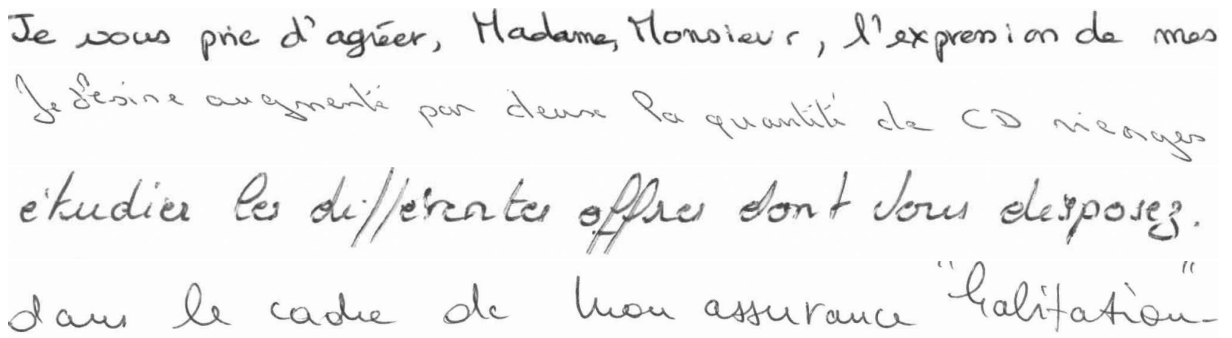 Je vous prie d'agréer, Madame, Monsieur, l'expression de mes
Je désire augmenté par deux la quantité de CD vierges
étudier les différentes offres dont vous disposez.
dans le cadre de mon assurance "habitation"